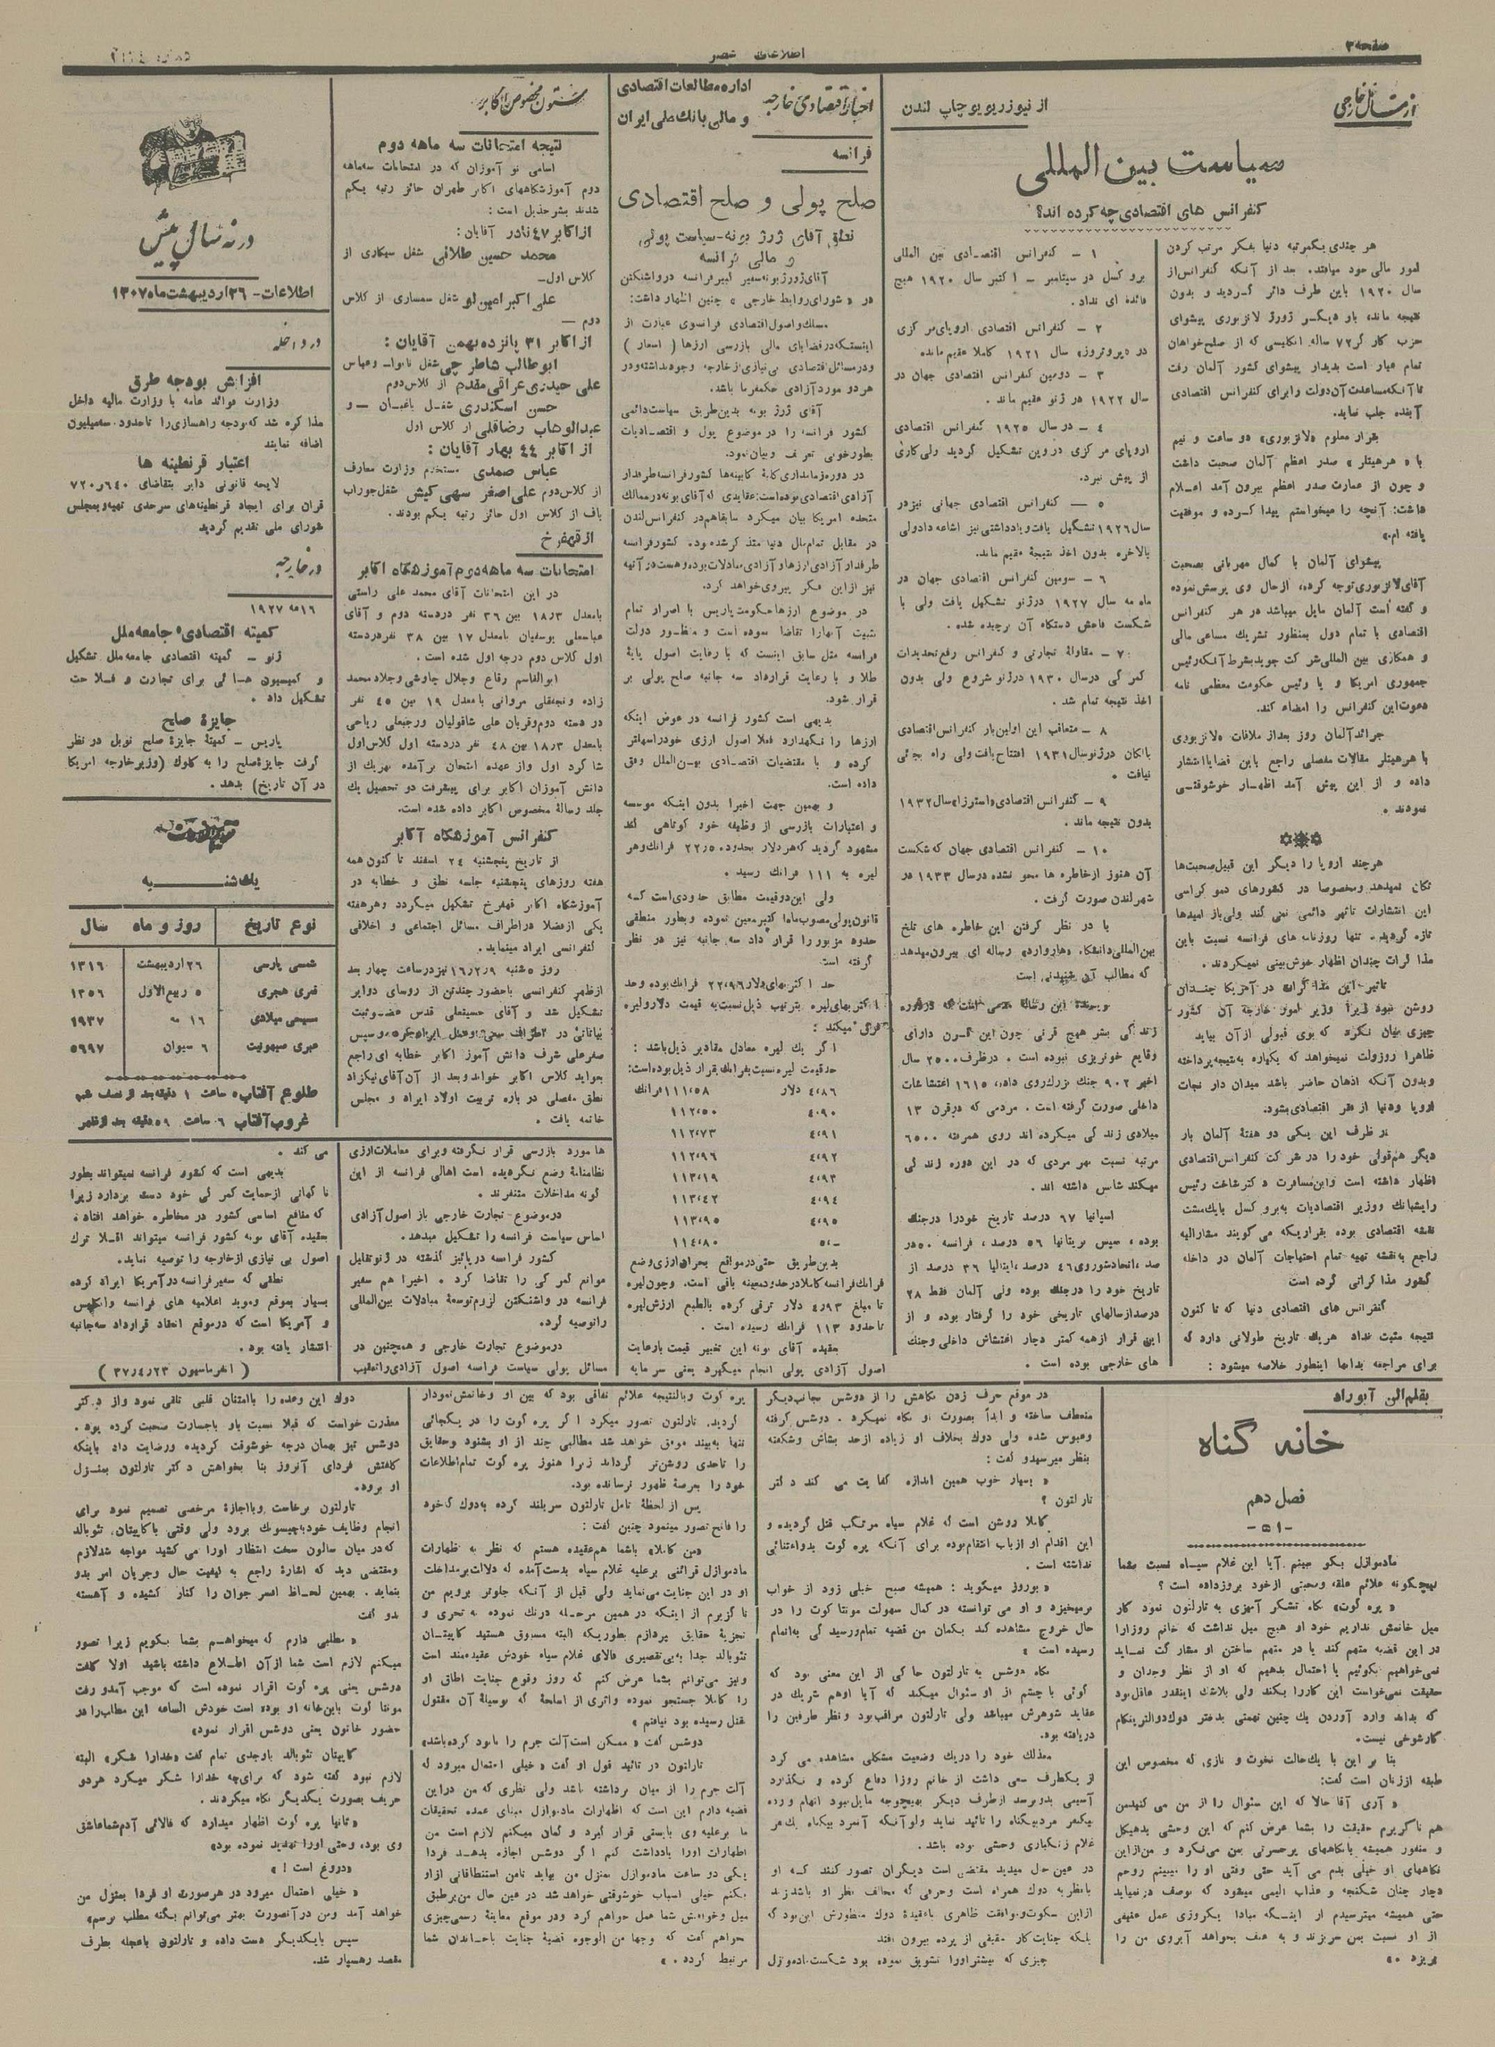 صفحه ۲
اطلاعات عصر
از مسائل خارجی
از نیوز ریویو چاپ لندن
سیاست بین المللی
کنفرانس های اقتصادی چه کرده اند؟
هر چندی یکمرتبه دنیا بفکر مرتب کردن
امور مالی خود میافتد. بعد از آنکه کنفرانس از
سال ۱۹۲۰ باین طرف دائر گردید و بدون
نتیجه ماند، بار دیگر ژورژ لانزبوری پیشوای
حزب کارگر ۷۲ ساله انگلیسی که از صلح‌خواهان
تمام عیار است بدیدار پیشوای کشور آلمان رفت
تا آنکه مساعدت آن دولت را برای کنفرانس اقتصادی
آینده جلب نماید.
بقرار معلوم «لانزبوری» دو ساعت و نیم
با «هرهیتلر» صدر اعظم آلمان صحبت داشت
و چون از عمارت صدر اعظم بیرون آمد اعلام
داشت: آنچه را میخواستم پیدا کرده و موفقیت
یافته ام.
پیشوای آلمان با کمال مهربانی بصحبت
آقای لانزبوری توجه کرده، از حال وی پرسش نموده
و گفته است آلمان مایل میباشد در هر کنفرانس
اقتصادی با تمام دول بمنظور تشریک مساعی مالی
و همکاری بین المللی شرکت جوید بشرط آنکه رئیس
جمهوری امریکا و یا رئیس حکومت معظمی نامه
دعوت این کنفرانس را امضاء کند.
جرائد آلمان روز بعد از ملاقات «لانزبوری
با هرهیتلر مقالات مفصلی راجع باین قضایا انتشار
داده و از این پیش آمد اظهار خوشوقتی
نمودند.
هرچند اروپا را دیگر این قبیل صحبت‌ها
تکان نمیدهد و مخصوصا در کشورهای دموکراسی
این انتشارات تاثیر دائمی نمی کند ولی باز امیدها
تازه گردید. تنها روزنامه های فرانسه نسبت باین
مذاکرات چندان اظهار خوش‌بینی نمیکردند.
تاثیر این مذاکرات در آمریکا چندان
روشن نبود زیرا وزیر امور خارجه آن کشور
چیزی بیان نکرد که بوی قبولی از آن بیاید
ظاهرا روزولت نمیخواهد که یکباره به نتیجه پرداخته
و بدون آنکه اذهان حاضر باشد میدان دار نجات
اروپا و دنیا از فقر اقتصادی بشود.
در ظرف این یکی دو هفته آلمان بار
دیگر هم‌قولی خود را در شرکت کنفرانس اقتصادی
اظهار داشته است و این مسافرت دکتر شاخت رئیس
رایشبانک و وزیر اقتصادیات به بروکسل با یک مشت
نقشه اقتصادی بوده بقراریکه می گویند مشارالیه
راجع به نقشه تهیه تمام احتیاجات آلمان در داخله
کشور مذاکراتی کرده است
کنفرانس های اقتصادی دنیا که تا کنون
نتیجه مثبت نداد هر یک تاریخ طولانی دارد که
برای مراجعه بدانها اینطور خلاصه میشود:
۱ - کنفرانس اقتصادی بین المللی
بروکسل در سپتامبر - اکتبر سال ۱۹۲۰ هیچ
فائده ای نداد.
۲ - کنفرانس اقتصادی اروپای مرکزی
در «پروتروز» سال ۱۹۲۱ کاملا عقیم مانده
۳ - دومین کنفرانس اقتصادی جهان در
سال ۱۹۲۲ در ژنو عقیم ماند.
۴ - در سال ۱۹۲۵ کنفرانس اقتصادی
اروپای مرکزی در وین تشکیل گردید ولی کاری
از پیش نبرد.
۵ - کنفرانس اقتصادی جهانی نیز در
سال ۱۹۲۶ تشکیل یافت و یادداشتی نیز اشاعه داد ولی
بالاخره بدون اخذ نتیجه عقیم ماند.
۶ - سومین کنفرانس اقتصادی جهان در
ماه مه سال ۱۹۲۷ در ژنو تشکیل یافت ولی با
شکست فاحش دستگاه آن برچیده شد.
۷ - مقاوله تجارتی و کنفرانس رفع تحدیدات
گمرکی در سال ۱۹۳۰ در ژنو شروع ولی بدون
اخذ نتیجه تمام شد.
۸ - متعاقب این اولین بار کنفرانس اقتصادی
بالکان در ژنو سال ۱۹۳۱ افتتاح یافت ولی راه بجائی
نیافت.
۹ - کنفرانس اقتصادی «استرزا» سال ۱۹۳۲
بدون نتیجه ماند.
۱۰ - کنفرانس اقتصادی جهان که شکست
آن هنوز از خاطره ها محو نشده در سال ۱۹۳۳ در
شهر لندن صورت گرفت.
با در نظر گرفتن این خاطره های تلخ
بین المللی دانشگاه «هاروارد» رساله ای بیرون میدهد
که مطالب آن شنیدنی است
زندگی بشر هیچ قرنی چون این قرن دارای
وقایع خونریزی نبوده است. در ظرف ۲۵۰۰ سال
اخیر ۹۰۲ جنگ بزرگ روی داده، ۱۶۱۵ اغتشاشات
داخلی صورت گرفته است. مردمی که در قرن ۱۳
میلادی زندگی میکرده اند روی همرفته ۶۵۰۰
مرتبه نسبت بهر مردی که در این دوره زندگی
میکند شانس داشته اند.
اسپانیا ۶۷ درصد تاریخ خود را در جنگ
بوده، سپس بریتانیا ۵۶ درصد، فرانسه ۵۰ در
صد، اتحاد شوروی ۴۶ درصد، ایتالیا ۳۶ درصد از
تاریخ خود را در جنگ بوده ولی آلمان فقط ۲۸
درصد از سالهای تاریخی خود را گرفتار بوده و از
این قرار از همه کمتر دچار اغتشاش داخلی و جنگ
های خارجی بوده است.
اخبار اقتصادی خارجه
اداره مطالعات اقتصادی
و مالی بانک ملی ایران
فرانسه
صلح پولی و صلح اقتصادی
نطق آقای ژرژ بونه - سیاست پولی
و مالی فرانسه
آقای ژورژ بونه سفیر کبیر فرانسه در واشنگتن
در «شورای روابط خارجی» چنین اظهار داشت:
مسلک و اصول اقتصادی فرانسوی عبارت از
اینستکه در قضایای مالی بازرسی ارزها (اسعار)
و در مسائل اقتصادی بی نیازی از خارجه وجود نداشته و در
هر دو مورد آزادی حکمفرما باشد.
آقای ژرژ بونه بدین طریق سیاست دائمی
کشور فرانسه را در موضوع پول و اقتصادیات
بطور خوبی تعریف و بیان نمود.
در دوره زمامداری کلیه کابینه‌ها کشور فرانسه طرفدار
آزادی اقتصادی بوده است: عقایدی که آقای بونه در ممالک
متحده امریکا بیان میکرد سابقا هم در کنفرانس لندن
در مقابل تمام ملل دنیا متذکر شده بود. کشور فرانسه
طرفدار آزادی ارزها و آزادی مبادلات بوده و هست در آتیه
نیز از این فکر پیروی خواهد کرد.
در موضوع ارزها حکومت پاریس با اصرار تمام
تثبیت آنها را تقاضا نموده است و منظور دولت
فرانسه مثل سابق اینست که با رعایت اصول پایه
طلا و با رعایت قرارداد سه جانبه صلح پولی بر
قرار شود.
بدیهی است کشور فرانسه در عوض اینکه
ارزها را نگهدارد فعلا اصول ارزی خود را سهلتر
کرده و با مقتضیات اقتصادی بین‌الملل وفق
داده است.
و بهمین جهت اخیرا بدون اینکه موسسه
و اعتبارات بازرسی از وظیفه خود کوتاهی کند
مشهود گردید که هر دلار بحدود ۲۲٫۵۰ فرانک و هر
لیره به ۱۱۱ فرانک رسید.
ولی این دو قیمت مطابق حدودی است که
قانون پولی مصوب ماه اکتبر معین نموده و بطور منطقی
حدود مزبور را قرارداد سه جانبه نیز در نظر
گرفته است
حد اکثر بهای دلار ۲۲٫۹۶ فرانک بوده و حد
اکثر بهای لیره بترتیب ذیل نسبت به قیمت دلار و لیره
فرق میکند:
اگر یک لیره معادل مقادیر ذیل باشد:
حد قیمت لیره نسبت بفرانک بقرار ذیل بوده است:
۴٫۸۶ دلار ۱۱۱٫۵۸ فرانک
۴٫۹۰ ۱۱۲٫۵۰
۴٫۹۱ ۱۱۲٫۷۳
۴٫۹۲ ۱۱۲٫۹۶
۴٫۹۳ ۱۱۳٫۱۹
۴٫۹۴ ۱۱۳٫۴۲
۴٫۹۵ ۱۱۳٫۹۵
۵٫- ۱۱۴٫۸۰
بدین طریق حتی در مواقع بحران ارزی وضع
فرانک فرانسه کاملا در حدود معینه باقی است. و چون لیره
تا مبلغ ۴٫۹۳ دلار ترقی کرده بالطبع ارزش لیره
تا حدود ۱۱۳ فرانک رسیده است.
بعقیده آقای بونه این تغییر قیمت با رعایت
اصول آزادی پولی انجام میگیرد یعنی سرمایه
ها مورد بازرسی قرار نگرفته و برای معاملات ارزی
نظامنامه وضع نگردیده است اهالی فرانسه از این
گونه مداخلات متنفرند.
در موضوع تجارت خارجی باز اصول آزادی
اساس سیاست فرانسه را تشکیل میدهد.
کشور فرانسه در پائیز گذشته در ژنو تقلیل
موانع گمرکی را تقاضا کرد. اخیرا هم سفیر
فرانسه در واشنگتن لزوم توسعه مبادلات بین المللی
را توصیه کرد.
در موضوع تجارت خارجی و همچنین در
مسائل پولی سیاست فرانسه اصول آزادی را تعقیب
می کند.
بدیهی است که کشور فرانسه نمیتواند بطور
ناگهانی از حمایت گمرکی خود دست بردارد زیرا
که منافع اساسی کشور در مخاطره خواهد افتاد.
بعقیده آقای بونه کشور فرانسه میتواند اقلا ترک
اصول بی نیازی از خارجه را توصیه نماید.
نطقی که سفیر فرانسه در آمریکا ایراد کرده
بسیار بموقع و موید اعلامیه های فرانسه و انگلیس
و آمریکا است که در موقع انعقاد قرارداد سه جانبه
انتشار یافته بود.
(انفرماسیون ۳۷/۴/۲۳)
ستون مخصوص اکابر
نتیجه امتحانات سه ماهه دوم
اسامی نو آموزان که در امتحانات سه‌ماهه
دوم آموزشگاههای اکابر طهران حائز رتبه یکم
شدند بشر حذیل است:
از اکابر ۴۷ نادر آقایان:
محمد حسین طلائی شغل سیگاری از
کلاس اول -
علی اکبر امین لو شغل سمساری از کلاس
دوم -
از اکابر ۳۱ پانزده بهمن آقایان:
ابوطالب شاطرچی شغل نانوا - و عباس
علی حیدری عراقی مقدم از کلاس دوم
حسن اسکندری شغل باغبان - و
عبدالوهاب رضاقلی از کلاس اول
از اکابر ۴۴ بهار آقایان:
عباس صمدی مستخدم وزارت معارف
از کلاس دوم علی اصغر سهی کیش شغل جوراب
باف از کلاس اول حائز رتبه یکم بودند.
از قهفرخ
امتحانات سه ماهه دوم آموزشگاه اکابر
در این امتحانات آقای محمد علی راستی
بامعدل ۱۸٫۳ بین ۳۶ نفر در دسته دوم و آقای
عباسعلی یوسفیان بامعدل ۱۷ بین ۳۸ نفر در دسته
اول کلاس دوم درجه اول شده است.
ابوالقاسم رفاع وجلال چاوشی وجلاد محمد
زاده و نجفقلی مروانی بامعدل ۱۹ بین ۴۵ نفر
در دسته دوم و قربان علی شاقولیان و رجبعلی ریاحی
بامعدل ۱۸٫۳ بین ۴۸ نفر در دسته اول کلاس اول
شاگرد اول و از عهده امتحان برآمده بهر یک از
دانش آموزان اکابر برای پیشرفت دو تحصیل یک
جلد رساله مخصوص اکابر داده شده است.
کنفرانس آموزشگاه اکابر
از تاریخ پنجشنبه ۲۴ اسفند تا کنون همه
هفته روزهای پنجشنبه جلسه نطق و خطابه در
آموزشگاه اکابر قهفرخ تشکیل میگردد و هر هفته
یکی از فضلا در اطراف مسائل اجتماعی و اخلاقی
کنفرانسی ایراد مینماید.
روز ۵شنبه ۱۶/۲/۹ نیز در ساعت چهار بعد
از ظهر کنفرانسی با حضور چندتن از روسای دوایر
تشکیل شد و آقای حسینعلی قدس عضو ثبت
بیاناتی در اطراف سعی و عمل ایراد کرد و سپس
صفرعلی شرف دانش آموز اکابر خطابه ای راجع
بفوائد کلاس اکابر خواند و بعد از آن آقای نیکزاد
نطق مفصلی در باره تربیت اولاد ایراد و مجلس
خاتمه یافت.
در نه سال پیش
اطلاعات - ۲۶ اردیبهشت ماه ۱۳۰۷
در داخله
افزایش بودجه طرق
وزارت فوائد عامه با وزارت مالیه داخل
مذاکره شد که بودجه راهسازی را تا حدود سه میلیون
اضافه نمایند
اعتبار قرنطینه ها
لایحه قانونی دایر بتقاضای ۷۲۰٫۶۴۰
قران برای ایجاد قرنطینه‌های سرحدی تهیه و بمجلس
شورای ملی تقدیم گردید
در خارجه
۱۶ مه ۱۹۲۷
کمیته اقتصادی جامعه ملل
ژنو - کمیته اقتصادی جامعه ملل تشکیل
و کمیسیون هائی برای تجارت و فلاحت
تشکیل داد.
جایزه صلح
پاریس - کمیته جایزه صلح نوبل در نظر
گرفت جایزه صلح را به کلوک (وزیر خارجه امریکا
در آن تاریخ) بدهد.
یک شنبه
نوع تاریخ روز و ماه سال
شمسی پارسی ۲۶ اردیبهشت ۱۳۱۶
قمری هجری ۵ ربیع الاول ۱۳۵۶
مسیحی میلادی ۱۶ مه ۱۹۳۷
عبری صیهونیت ۶ سیوان ۵۶۹۷
طلوع آفتاب ۵ ساعت ۱ دقیقه بعد از نصف شب
غروب آفتاب ۶ ساعت ۵۹ دقیقه بعد از ظهر
بقلم الن آپوراد
خانه گناه
فصل دهم
-۵۱-
مادموازل بگو ببینم آیا این غلام سیاه نسبت بشما
هیچگونه علائم علقه و محبتی از خود بروز داده است؟
«پره گوت» نگاه تشکر آمیزی به تارلتون نمود گار
میل خانمش نداریم خود او هیچ میل نداشت که خانم روزارا
در این قضیه متهم کند یا در متهم ساختن او مشارکت نماید
نمی‌خواهیم بگوئیم یا احتمال بدهیم که او از نظر وجدان و
حقیقت نمی‌خواست این کار را بکند ولی بلاشک اینقدر عاقل بود
که بداند وارد آوردن یک چنین تهمتی بدختر دوک دوالترینگام
کار شوخی نیست.
بنا بر این با یک حالت نخوت و نازی که مخصوص این
طبقه از زنان است گفت:
«آری آقا حالا که این سئوال را از من می کنید من
هم ناگزیرم حقیقت را بشما عرض کنم که این وحشی بدهیکل
و منفور همیشه با نگاههای پرحسرتی بمن می‌نگرد و من از این
نگاههای او خیلی بدم می آید حتی وقتی او را میبینم روحم
دچار چنان شکنجه و عذاب الیمی میشود که بوصف در نمیاید
حتی همیشه میترسیدم از اینکه مبادا یکروزی عمل عنیفی
از او نسبت بمن سر بزند و به عنف بخواهد آبروی من را
بریزد.»
در موقع حرف زدن نگاهش را از دوشس بجانب دیگر
منعطف ساخته و ابدا بصورت او نگاه نمیکرد. دوشس گرفته
و عبوس شده ولی دوک بخلاف او زیاده از حد بشاش و شکفته
بنظر میرسید و گفت:
«بسیار خوب همین اندازه کفایت می کند دکتر
تارلتون؟
کاملا روشن است که غلام سیاه مرتکب قتل گردیده و
این اقدام او از باب انتقام بوده برای آنکه پره گوت بدو اعتنائی
نداشته است.
«بوروز میگوید: همیشه صبح خیلی زود از خواب
برمیخیزد و او می توانسته در کمال سهولت مونتاگوت را در
حال خروج مشاهده کند بگمان من قضیه تمام و رسیدگی به اتمام
رسیده است»
نگاه دوشس به تارلتون حاکی از این معنی بود که
گوئی با چشم از او سئوال میکند که آیا او هم شریک در
عقاید شوهرش میباشد ولی تارلتون مراقب بود و نظر طرفین را
دریافته بود.
معذلک خود را در یک وضعیت مشکلی مشاهده می کرد
از یکطرف سعی داشت از خانم روزا دفاع کرده و نگذارد
آسیبی بدو برسد از طرف دیگر بهیچوجه مایل نبود اتهام وارده
بیکنفر مرد بیگناه را تائید نماید ولو آنکه آنمرد بیگناه یک نفر
غلام زنگباری وحشی بوده باشد.
در عین حال میدید مقتضی است دیگران تصور کنند که او
با نظریه دوک همراه است و حرفی که مخالف نظر او باشد نزند
از این سکوت و موافقت ظاهری با عقیده دوک منظورش این بود که
بلکه جنایت کار حقیقی از پرده بیرون افتد
چیزی که بیشتر او را تشویق نموده بود شکست مادموازل
پره گوت و بالنتیجه علائم نفاقی بود که بین او و خانمش نمودار
گردید. تارلتون تصور میکرد اگر پره گوت را در یکجائی
تنها به‌بیند موفق خواهد شد مطالبی چند از او بشنود و حقایق
را تا حدی روشن‌تر گرداند زیرا هنوز پره گوت تمام اطلاعات
خود را بعرصه ظهور نرسانده بود.
پس از لحظه تامل تارلتون سر بلند کرده به دوک که خود
را فاتح تصور مینمود چنین گفت:
«من کاملا با شما هم‌عقیده هستم که نظر به اظهارات
مادموازل قرائنی بر علیه غلام سیاه بدست آمده که دلالت بر مداخلت
او در این جنایت می‌نماید ولی قبل از آنکه جلوتر برویم من
ناگزیرم از اینکه در همین مرحله درنگ نموده به تحری و
تجزیه حقایق پردازم بطوریکه البته مسبوق هستید کاپیتان
تئوبالد جدا به‌بی‌تقصیری فالای غلام سیاه خودش عقیده‌مند است
و نیز می‌توانم بشما عرض کنم که روز وقوع جنایت اطاق او
را کاملا جستجو نموده و اثری از اسلحه که بوسیله آن مقتول
بقتل رسیده بود نیافتم»
دوشس گفت «ممکن است آلت جرم را نابود کرده باشد»
تارلتون در تائید قول او گفت «خیلی احتمال میرود که
آلت جرم را از میان برداشته باشد ولی نظری که من در این
قضیه دارم این است که اظهارات مادموازل مبنای عمده تحقیقات
ما بر علیه وی بایستی قرار گیرد و گمان میکنم لازم است من
اظهارات او را یادداشت کنم اگر دوشس اجازه بدهد فردا
یکی دو ساعت مادموازل بمنزل من بیاید تا من استنطاقاتی از او
بکنم خیلی اسباب خوشوقتی خواهد شد در عین حال من بر طبق
میل و خواهش شما عمل خواهم کرد و در موقع معاینه رسمی چیزی
نخواهم گفت که وجها من الوجوه قضیه جنایت با خاندان شما
مرتبط گردد.»
دوک این وعده را با امتنان قلبی تلقی نمود و از دکتر
معذرت خواست که قبلا نسبت باو با جسارت صحبت کرده بود.
دوشس نیز بهمان درجه خوشوقت گردیده و رضایت داد باینکه
کلفتش فردای آنروز بنا بخواهش دکتر تارلتون بمنزل
او برود.
تارلتون برخاست و با اجازه مرخصی تصمیم نمود برای
انجام وظایف خود به چیسوک برود ولی وقتی با کاپیتان تئوبالد
که در میان سالون سخت انتظار او را می کشید مواجه شد لازم
و مقتضی دید که اشاره راجع به کیفیت حال و جریان امر بدو
بنماید. بهمین لحاظ افسر جوان را کنار کشیده و آهسته
بدو گفت
«مطلبی دارم که میخواهم بشما بگویم زیرا تصور
میکنم لازم است شما از آن اطلاع داشته باشید اولا کلفت
دوشس یعنی پره گوت اقرار نموده است که موجب آمد و رفت
مونتاگوت باین خانه او بوده است خودش الساعه این مطلب را در
حضور خانون یعنی دوشس اقرار نمود»
کاپیتان تئوبالد با وجدی تمام گفت «خدا را شکر» البته
لازم نبود گفته شود که برای چه خدا را شکر میکرد هر دو
حریف بصورت یکدیگر نگاه میکردند.
«ثانیا پره گوت اظهار میدارد که فالائی آدم شما عاشق
وی بوده و حتی او را تهدید نموده بود»
«دروغ است!»
«خیلی احتمال میرود در هر صورت او فردا بمنزل من
خواهد آمد و من در آن صورت بهتر می‌توانم بکنه مطلب برسم»
سپس با یکدیگر دست داده و تارلتون با عجله بطرف
مقصد رهسپار شد.